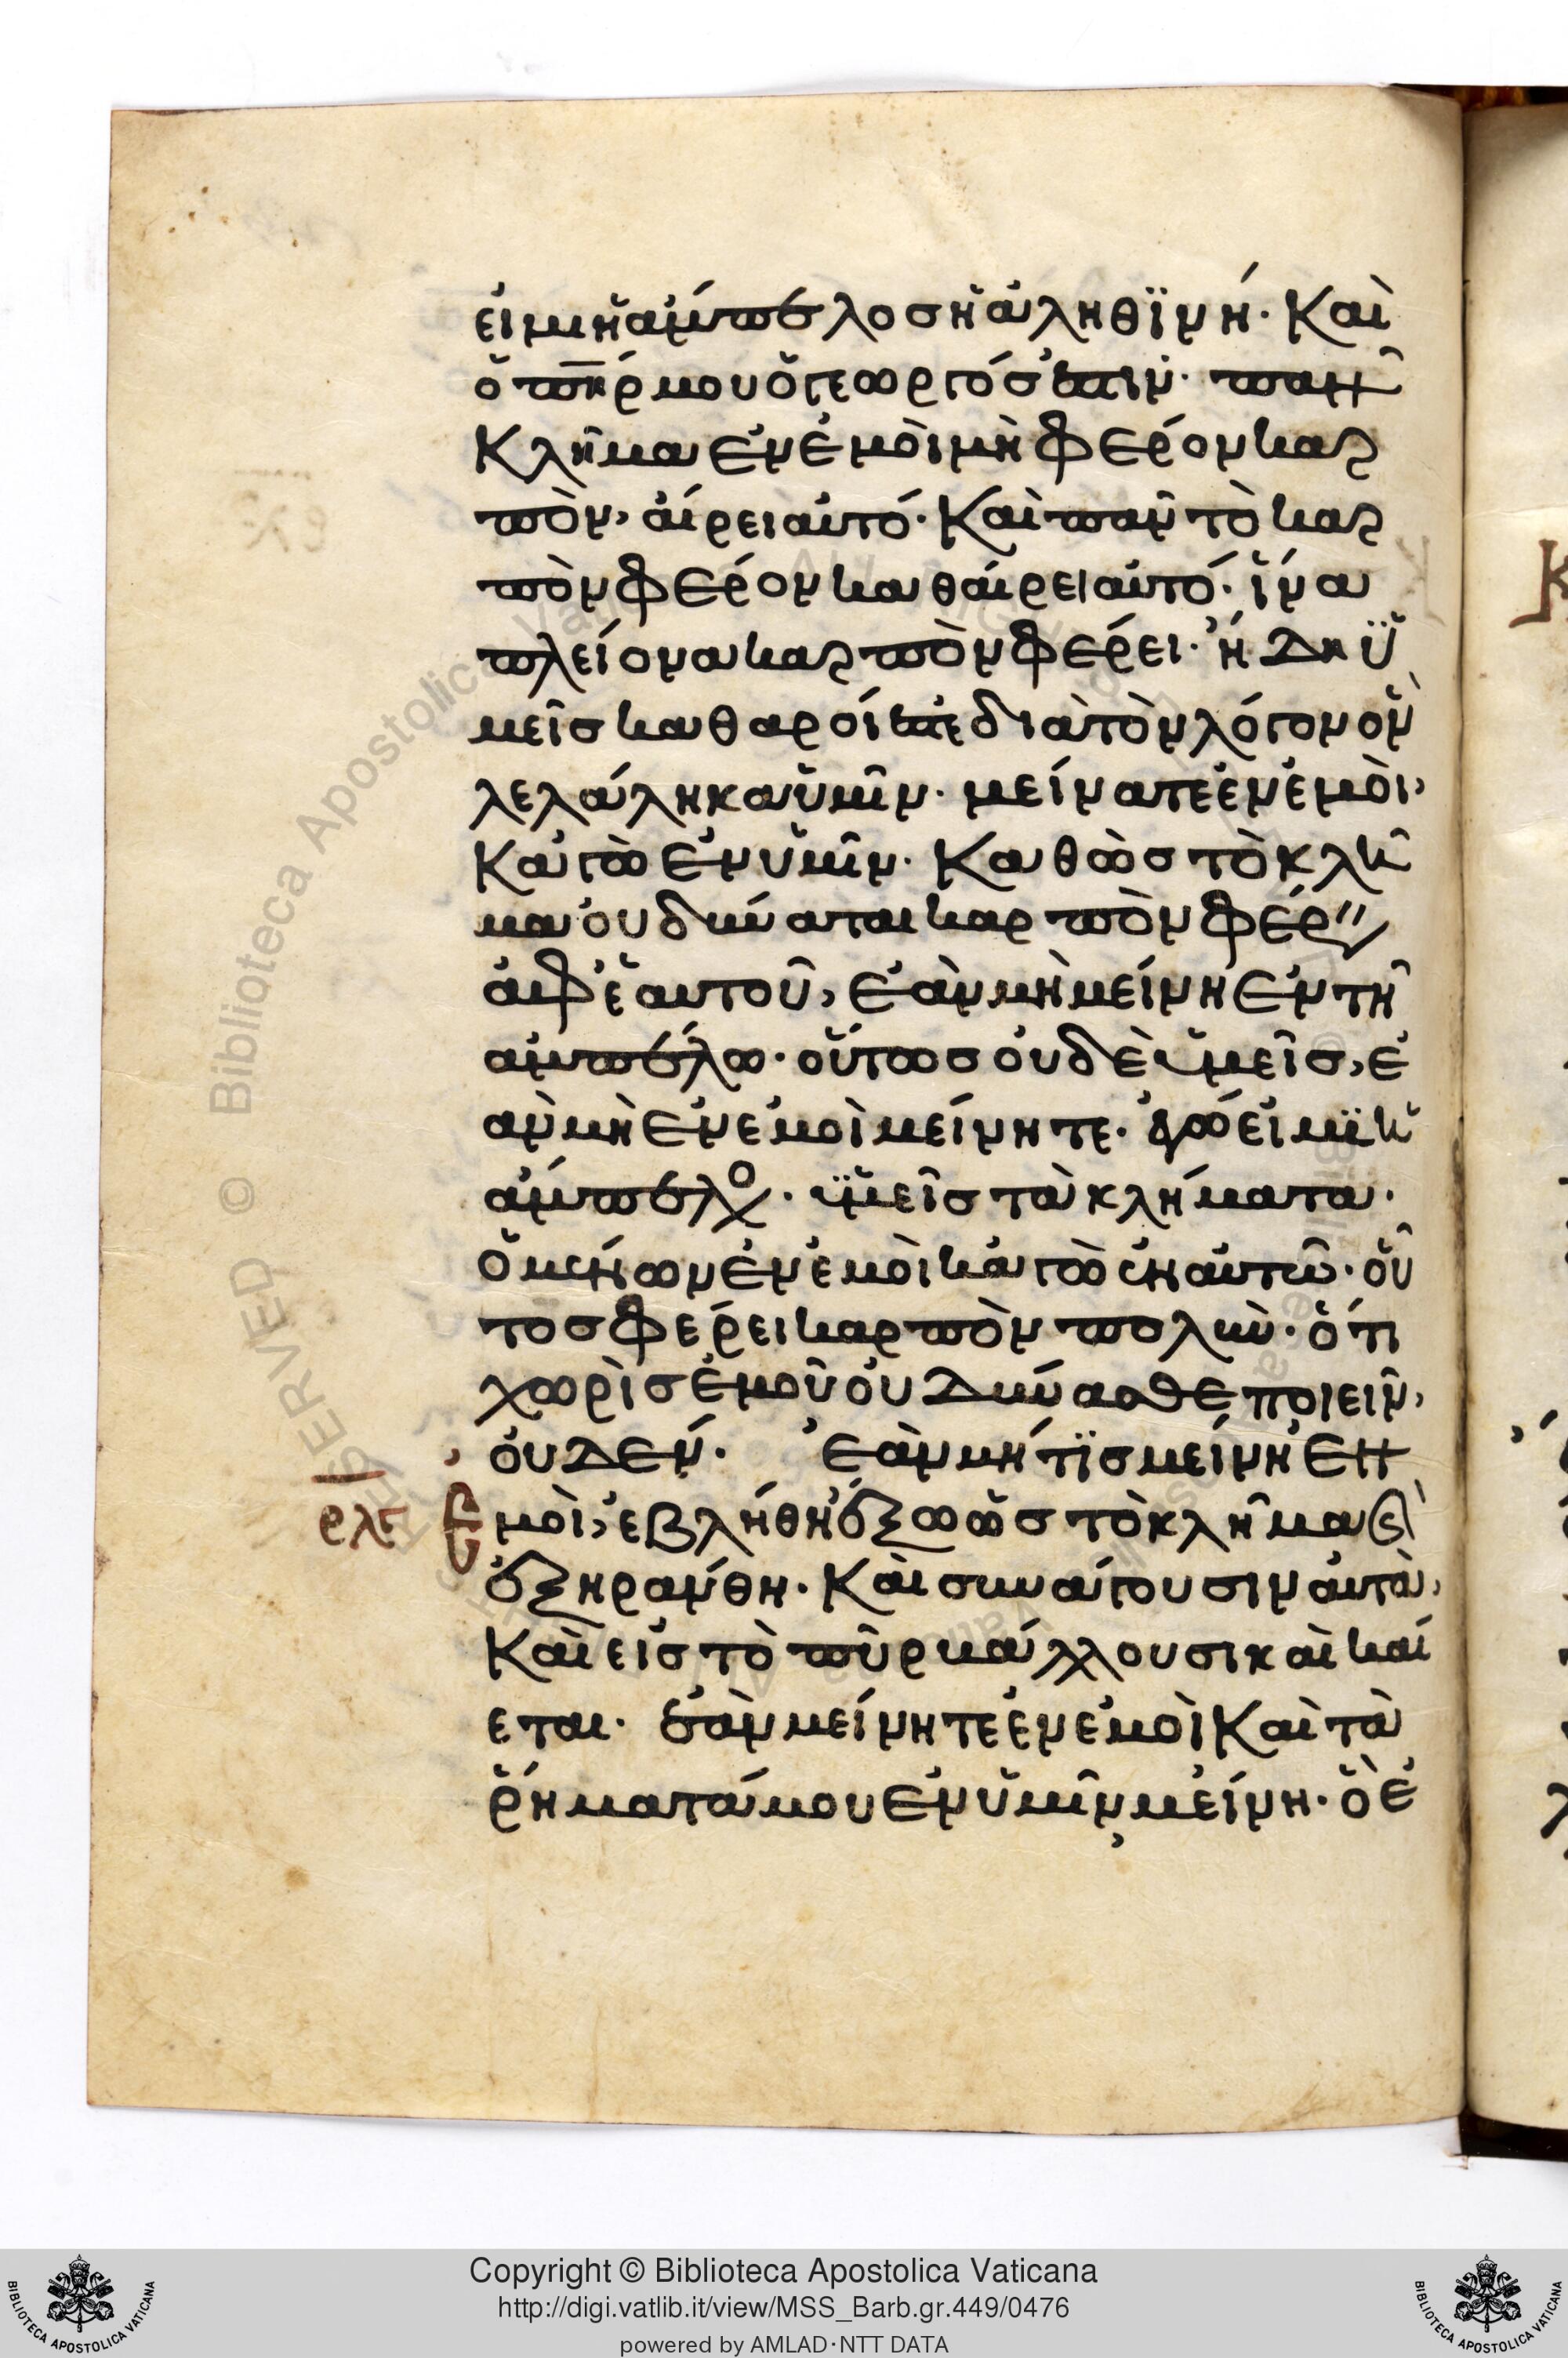 εἰμὶ ἡ ἄμπελος ἡ ἀληθϊνή· καὶ
ὁ π̅η̅ρ μου ὁ γεωργός ἐστιν· πᾶν
κλῆμα ἐν ἐμοὶ μὴ φέρον καρ
πὸν, αἴρει αὐτό· καὶ πᾶν τὸ καρ
πὸν φέρον καθαίρει αὐτό· ἵνα
πλείονα καρπὸν φέρει· ἤδη ὑ
μεῖς καθαροί ἐστε διὰ τὸν λόγον ὃν
λελάληκα ὑμῖν· μείνατε ἐν ἐμοὶ,
κἀγὼ ἐν ὑμῖν· καθὼς τὸ κλῆ
μα οὐ δύναται καρπὸν φέρ//
ἀφ' ἑαυτοῦ, ἐὰν μὴ μείνη ἐν τῆ
ἀμπέλω· οὕτως οὐδὲ ὑμεῖς, ἐ
ὰν μὴ ἐν ἐμοὶ μείνητε· ἐγώ εἰμϊ ἡ
ἄμπελο· ὑμεῖς τὰ κλήματα·
ὁ μένων ἐν ἐμοὶ κἀγὼ ἐν αὐτῶ· οὗ
τος φέρει καρπὸν πολὺν· ὅτι
χωρὶς ἐμοῦ οὐ δύνασθε ποιεῖν,
οὐδέν· ἐὰν μή τϊς μείνη ἐν
ρλε ἐμοὶ, ἐβλήθη ἔξω ὡς τὸ κλῆμα (καὶ)
ἐξηράνθη· καὶ συνάγουσιν αὐτὰ,
καὶ εἰς τὸ πῦρ βάλλουσι καὶ καί
εται· ἐὰν μείνητε ἐν ἐμοὶ καὶ τὰ
ῥήματά μου ἐν ὑμῖν μείνη· ὃ ἐ
Copyright © Biblioteca Apostolica Vaticana
http://digi.vatlib.it/view/MSS_Barb.gr.449/0476
powered by AMLAD·NTT DATA